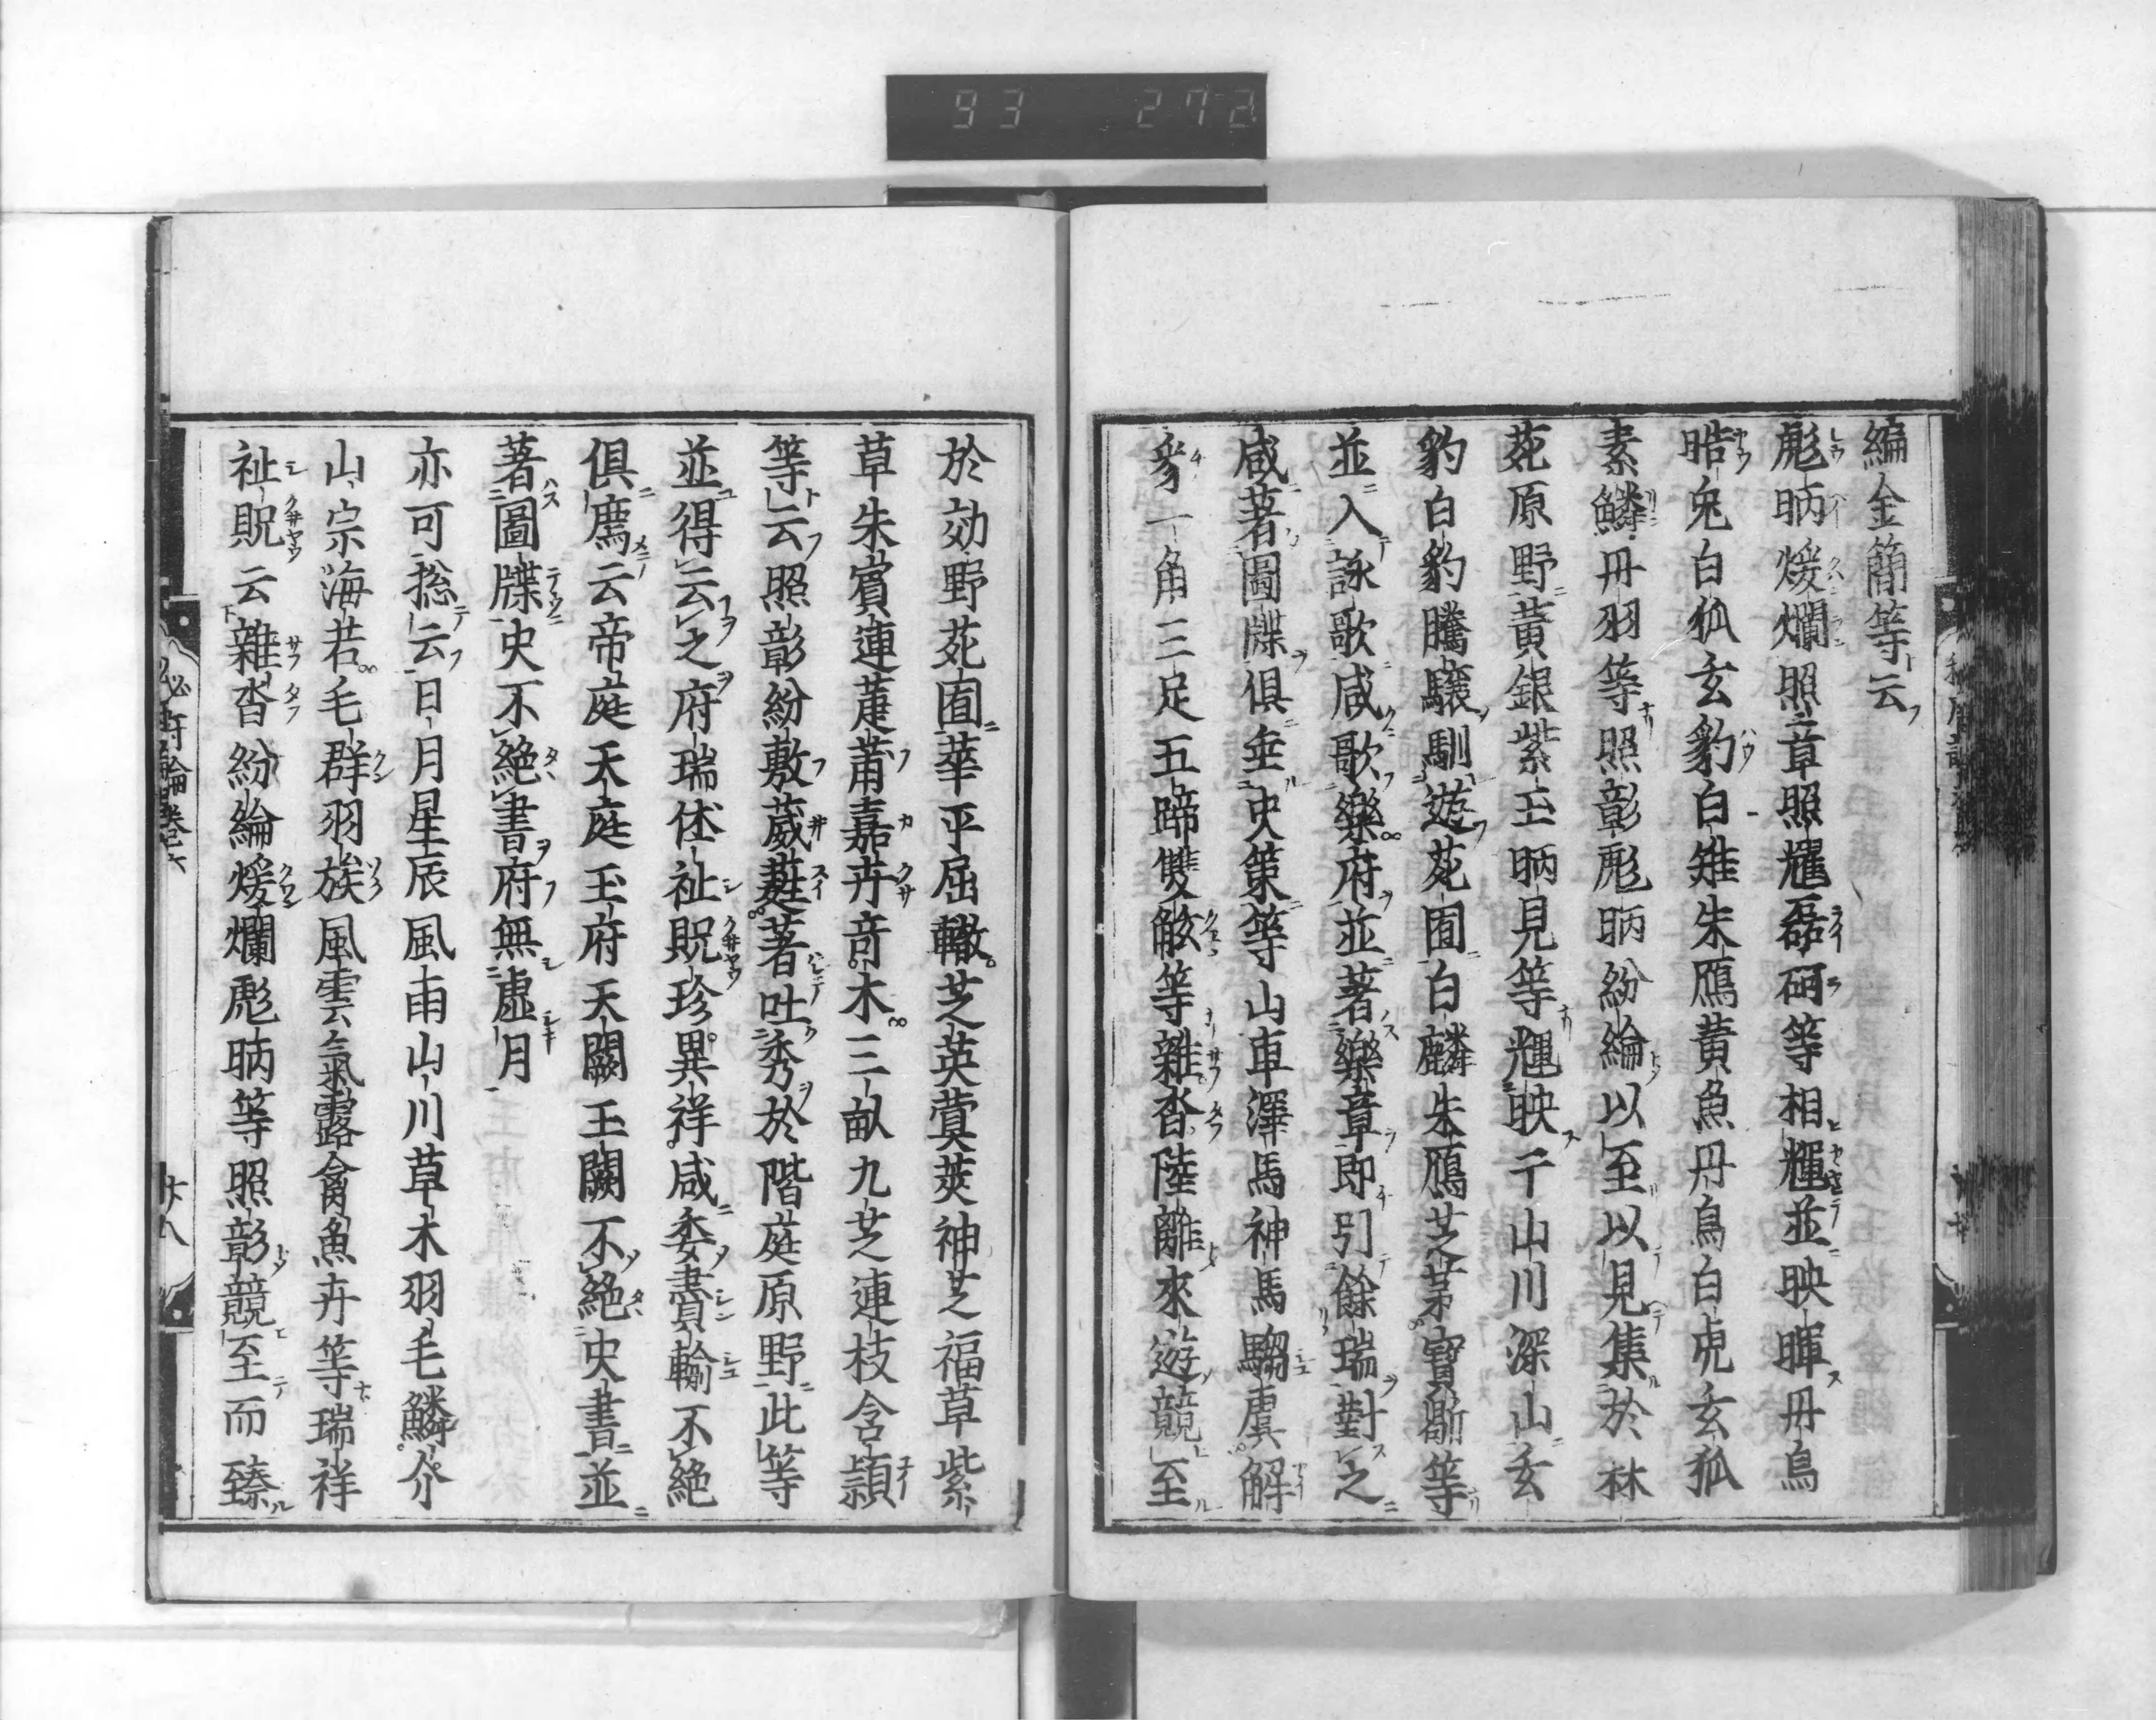 93 272
編金簡等云
彪昞煖爛照章照耀磊砢等相輝並映暉丹鳥
晧兔白狐玄豹白雉朱鴈黄魚丹鳥白虎玄狐
素鱗丹羽等照彰彪昞紛綸以至以見集於林
菀原野黄銀紫玉昞見等輝映千山川深山玄
豹白豹騰驤馴遊菀囿白麟朱鴈芝茅寶鼎等
並入詠歌咸歌樂府並著樂章即引餘瑞對之
咸著圖牒俱垂史策等山車澤馬神馬騶虞解
豸一角三足五蹄雙觡等雜沓陸離來遊競至
於効野菀囿華平屈轍芝英蓂莢神芝福草紫
草朱賓連萐莆嘉卉竒木三畝九芝連枝含頴
等云照彰紛敷葳蕤著吐秀於階庭原野此等
並得云之府瑞休祉貺珍異祥咸委賮輸不絶
俱廌云帝庭天庭玉府天闕玉闕不絶史書並
著圖牒史不絶書府無虚月
亦可捴云日月星辰風雨山川草木羽毛鱗介
山宗海若毛群羽族風雲氣露禽魚卉等瑞祥
祉貺云雜沓紛綸煖爛彪昞等照彰競至而臻
卷六
十八